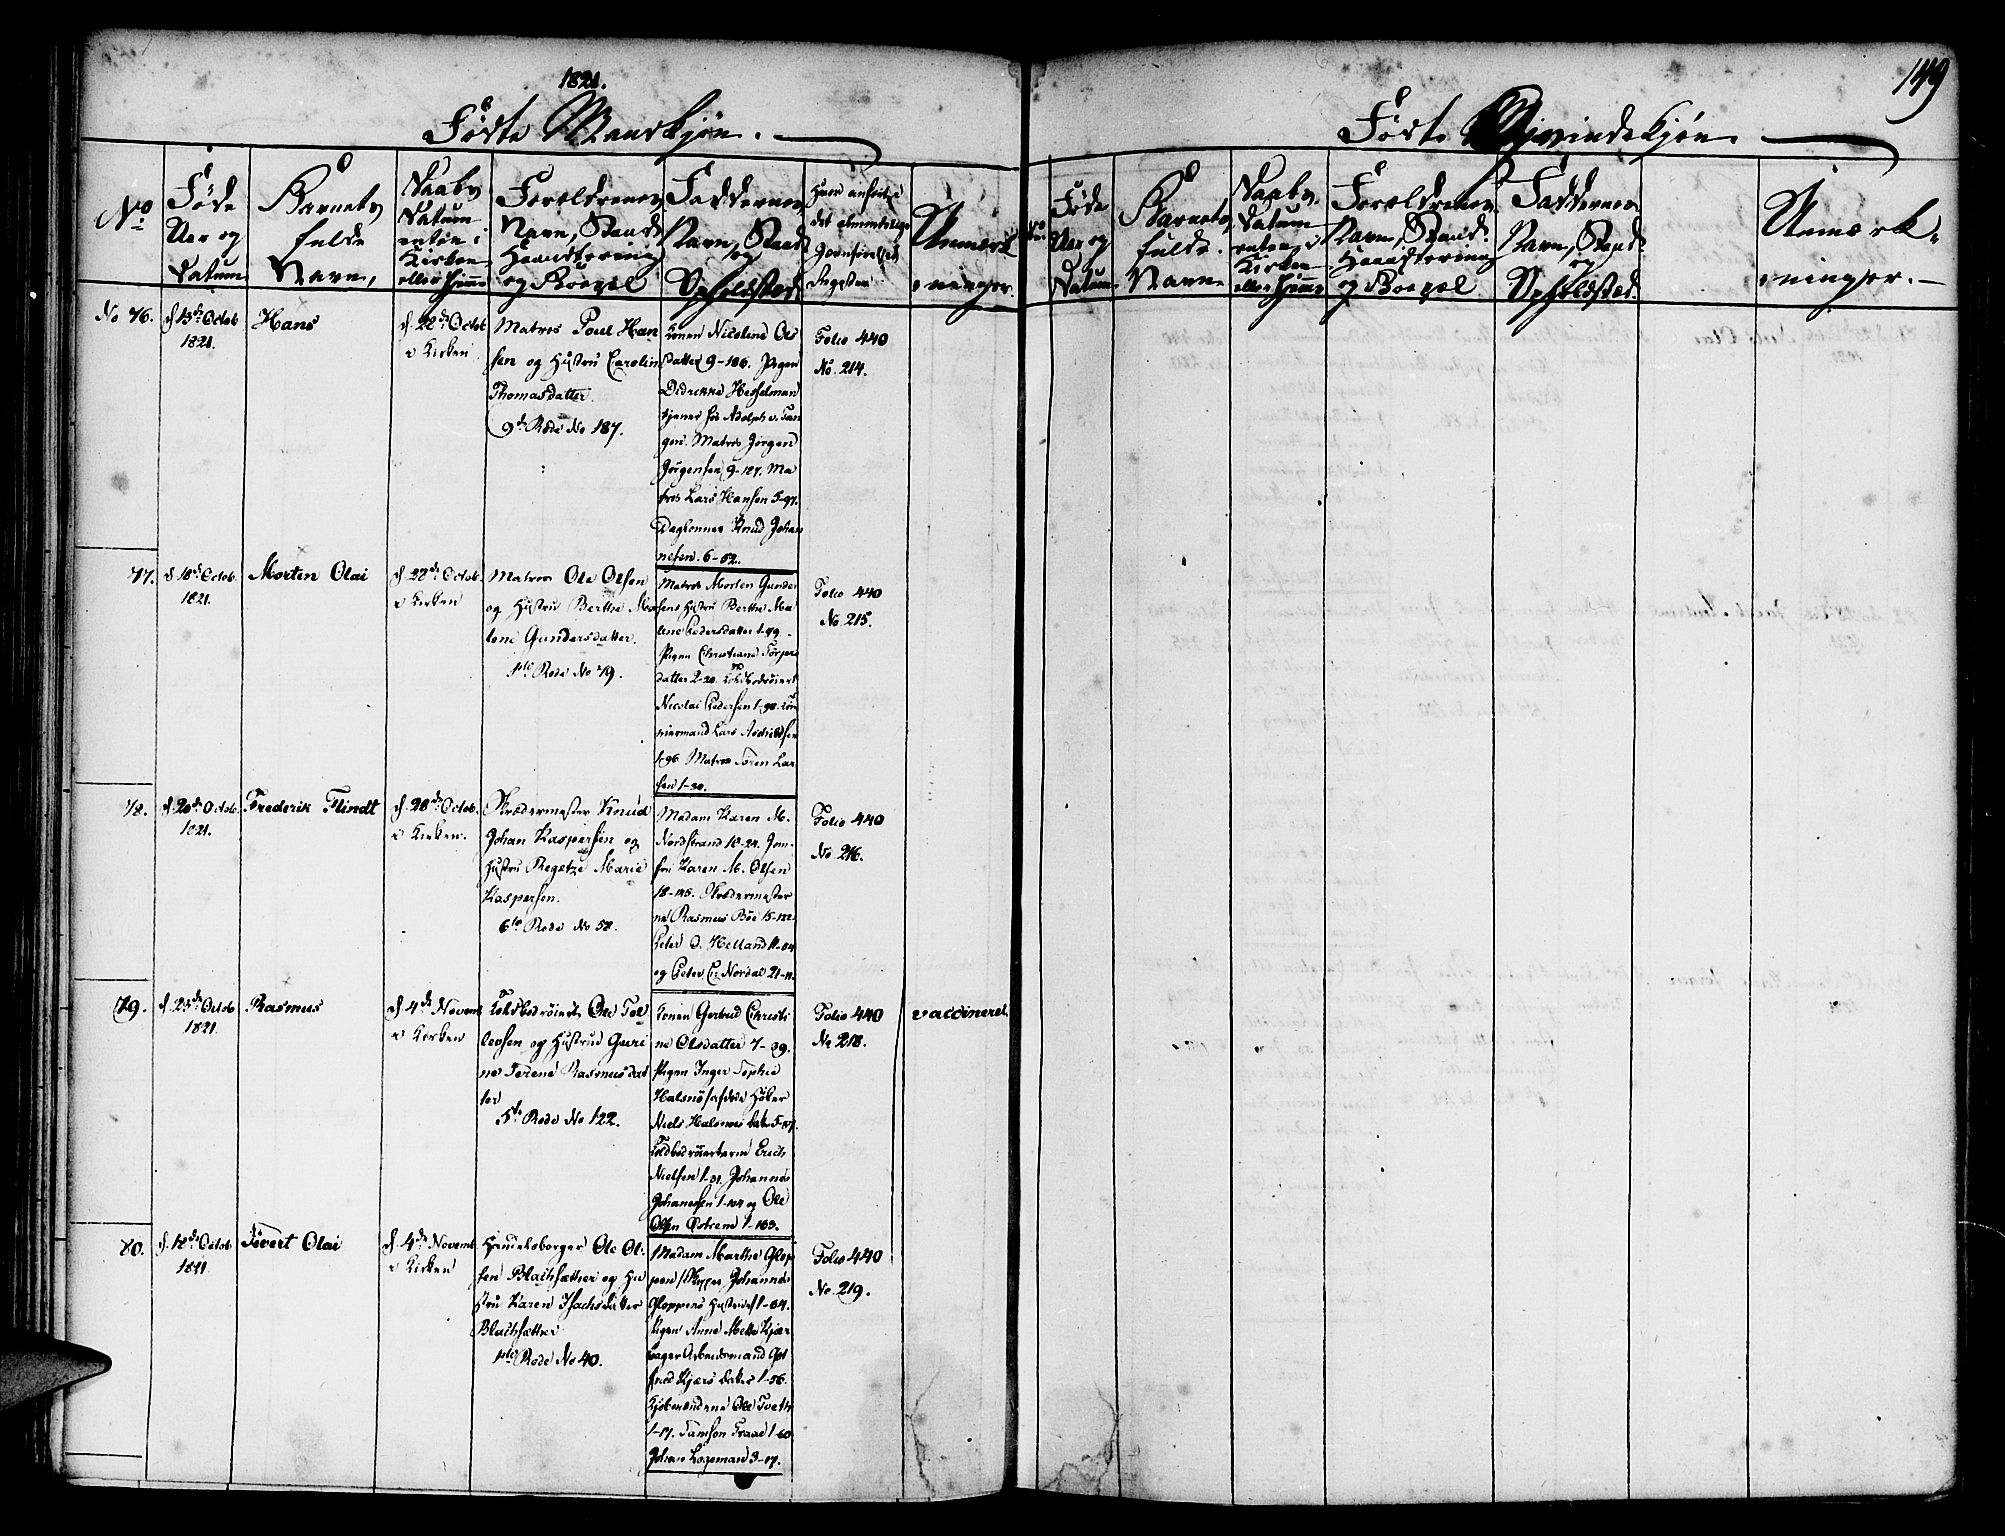 1821.
Fødte Mandkjøn.
No
Føde
Aar og
Datum
Barnets
fulde
Navn,
Daabs
Datum
enten i
Kirken
eller Hjemme
Forældrenes
Navn, Stand
Haandtering
og Boepæl
Faddernes
Navn, Stand
og
Opholdsted
Hvor anført i
det almindelige
Jevnførelses
Register
Anmærk-
ninger.
No 76.
d. 13de Octob
1821.
Hans
d. 28de Octob
i Kirken
Matros Poul Han
sen og Hustru Carolin
Thomasdatter.
9de Rode No 187.
Konen Nicoline Ols
datter 9-186. Pigen
Didrikke Hesselman
tjener hos Adolph v. Tan
gen. Matros Jørgen
Jørgensen 9-127. Ma
tros Lars Hansen 5-97.
Dagkonner Knud Johan
nesen. 6-62.
Folio 440
No. 214.
77.
d. 18de Octob.
1821.
Morten Olai
d. 28de Octob.
i Kirken
Matros Ole Olsen
og Hustru Berthe Ma
lene Gundersdatter.
1ste Rode No 79.
Matros Morten Gunder
sens Hustru Berthe Ma
lene Pedersdatter 1-79.
Pigen Christiane Torjers
datter 2-20.
Nicolai Pedersen 1-90.
mermand Lars
1-96. Matros Søren Lar
sen 1-30.
Folio 440
No. 215.
78.
d. 20de Octob.
1821.
Frederik Flindt
d. 28de Octob.
i Kirken.
Skrædermester Knud
Johan Kaspersen og
Hustru Regetze Marie
Kaspersen.
6te Rode No 58.
Madam Karen M.
Nordstrand 18-24. Jom-
fru Karen M. Olsen
18-145. Skrædermester
ne Rasmus Böe 15-122.
Peter O. Helland 11-84
og Peter C. Nordal 21-11.
Folio 440
No. 216.
79.
d. 23de Octob
1821.
Rasmus
d. 4de Novemb
i Kirken
Toldbedrøient Ole Tol
levsen og Hustrud Guri
ne Serene Rasmusdat
ter
5te Rode No 122.
Konen Gertrud Christi
ne Olsdatter 7-89.
Pigen Inger Sophie
Halsnös afdøde Höker
Niels Halsnöes Datter 5-117.
Toldbedrøienterne Erich
Nielsen 1-91. Johannes
Johanessen 1-104 og Ole
Olsen Østrem 1-103.
Folio 440
No 218.
vaccineret.
80.
d. 12de Octob
1821
Sivert Olai
d. 4de Novemb
i Kirken
Handelsborger Ole Ol-
sen Blachsætther og Hu
stru Karen Isachsdatter
Blachsætther
1ste Rode No 40.
Madam Marthe Glop
pen /Skipper Johannes
Gloppens Hustrue/ 1-84.
Pigen Anne Mette Kjær
bager Arbeidsmand Got
fried Kjærs Datter 1-56.
Kjöbmændene Ole Tveth
1-17. Samson Traae 1-60
Johan Logeman 3-17.
Folio 440
No. 219.
149
Fødte Qvindekjøn
No.
Føde
Aar og
Datum
Barnets
fulde
Navn
Daabs
Datum
enten i
Kirken
eller Hjemme
Forældrenes
Navn, Stand
Haandtering
og Boepæl
Faddernes
Navn, Stand
og
Opholdsted
Anmærk-
ninger.